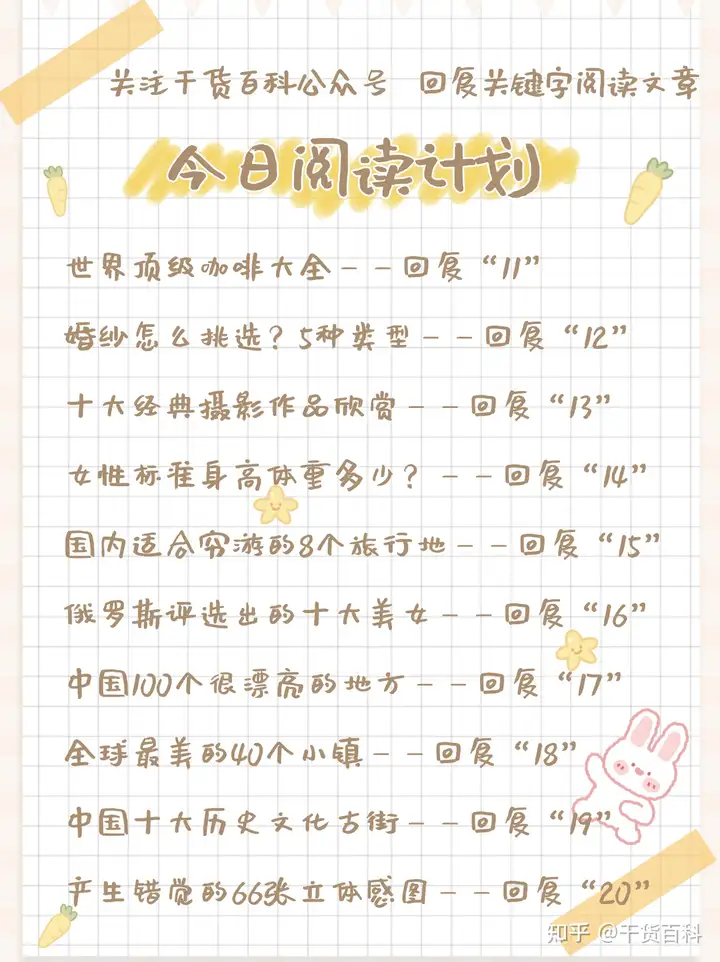 关注干货百科公众号 回复关键字阅读文章
今日阅读计划
世界顶级咖啡大全--回复“11”
婚纱怎么挑选？5种类型--回复“12”
十大经典摄影作品欣赏--回复“13”
女性标准身高体重多少？--回复“14”
国内适合穷游的8个旅行地--回复“15”
俄罗斯评选出的十大美女--回复“16”
中国100个很漂亮的地方--回复“17”
全球最美的40个小镇--回复“18”
中国十大历史文化古街--回复“19”
产生错觉的66张立体感图--回复“20”
知乎 @干货百科